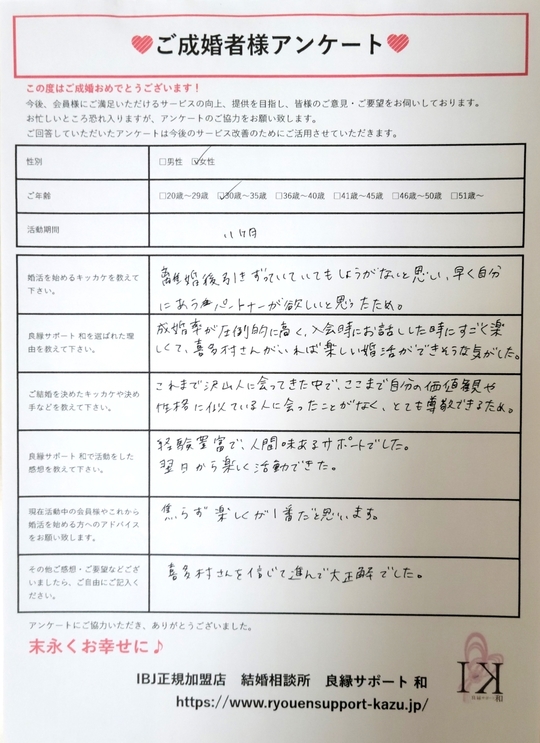 ご成婚者様アンケート
この度はご成婚おめでとうございます！
今後、会員様にご満足いただけるサービスの向上、提供を目指し、皆様のご意見・ご要望をお伺いしております。
お忙しいところ恐れ入りますが、アンケートのご協力をお願い致します。
ご回答していただいたアンケートは今後のサービス改善のためにご活用させていただきます。
性別
□男性 ☑女性
ご年齢
□20歳～29歳 ☑30歳～35歳 □36歳～40歳 □41歳～45歳 □46歳～50歳 □51歳～
活動期間
11ヶ月
婚活を始めるキッカケを教えて
下さい。
離婚後引きずっていていてもしょうがないと思い、早く自分
にあうパートナーが欲しいと思ったため。
良縁サポート 和を選ばれた理
由を教えて下さい。
成婚率が圧倒的に高く、入会時にお話しした時にすごく楽
しくて、喜多村さんがいれば楽しい婚活ができそうな気がした。
ご結婚を決めたキッカケや決め
手などを教えて下さい。
これまで沢山人に会ってきた中で、ここまで自分の価値観や
性格に似ている人に会ったことがなく、とても尊敬できるため。
良縁サポート 和で活動をした
感想を教えて下さい。
経験豊富で、人間味あるサポートでした。
翌月から楽しく活動できた。
現在活動中の会員様やこれから
婚活を始める方へのアドバイス
をお願い致します。
焦らず楽しくが1番だと思います。
その他ご感想・ご要望などござ
いましたら、ご自由にご記入く
ださい。
喜多村さんを信じて進んで大正解でした。
アンケートにご協力いただき、ありがとうございました。
末永くお幸せに♪
IBJ正規加盟店 結婚相談所 良縁サポート 和
https://www.ryouensupport-kazu.jp/
KI
良縁サポート 和